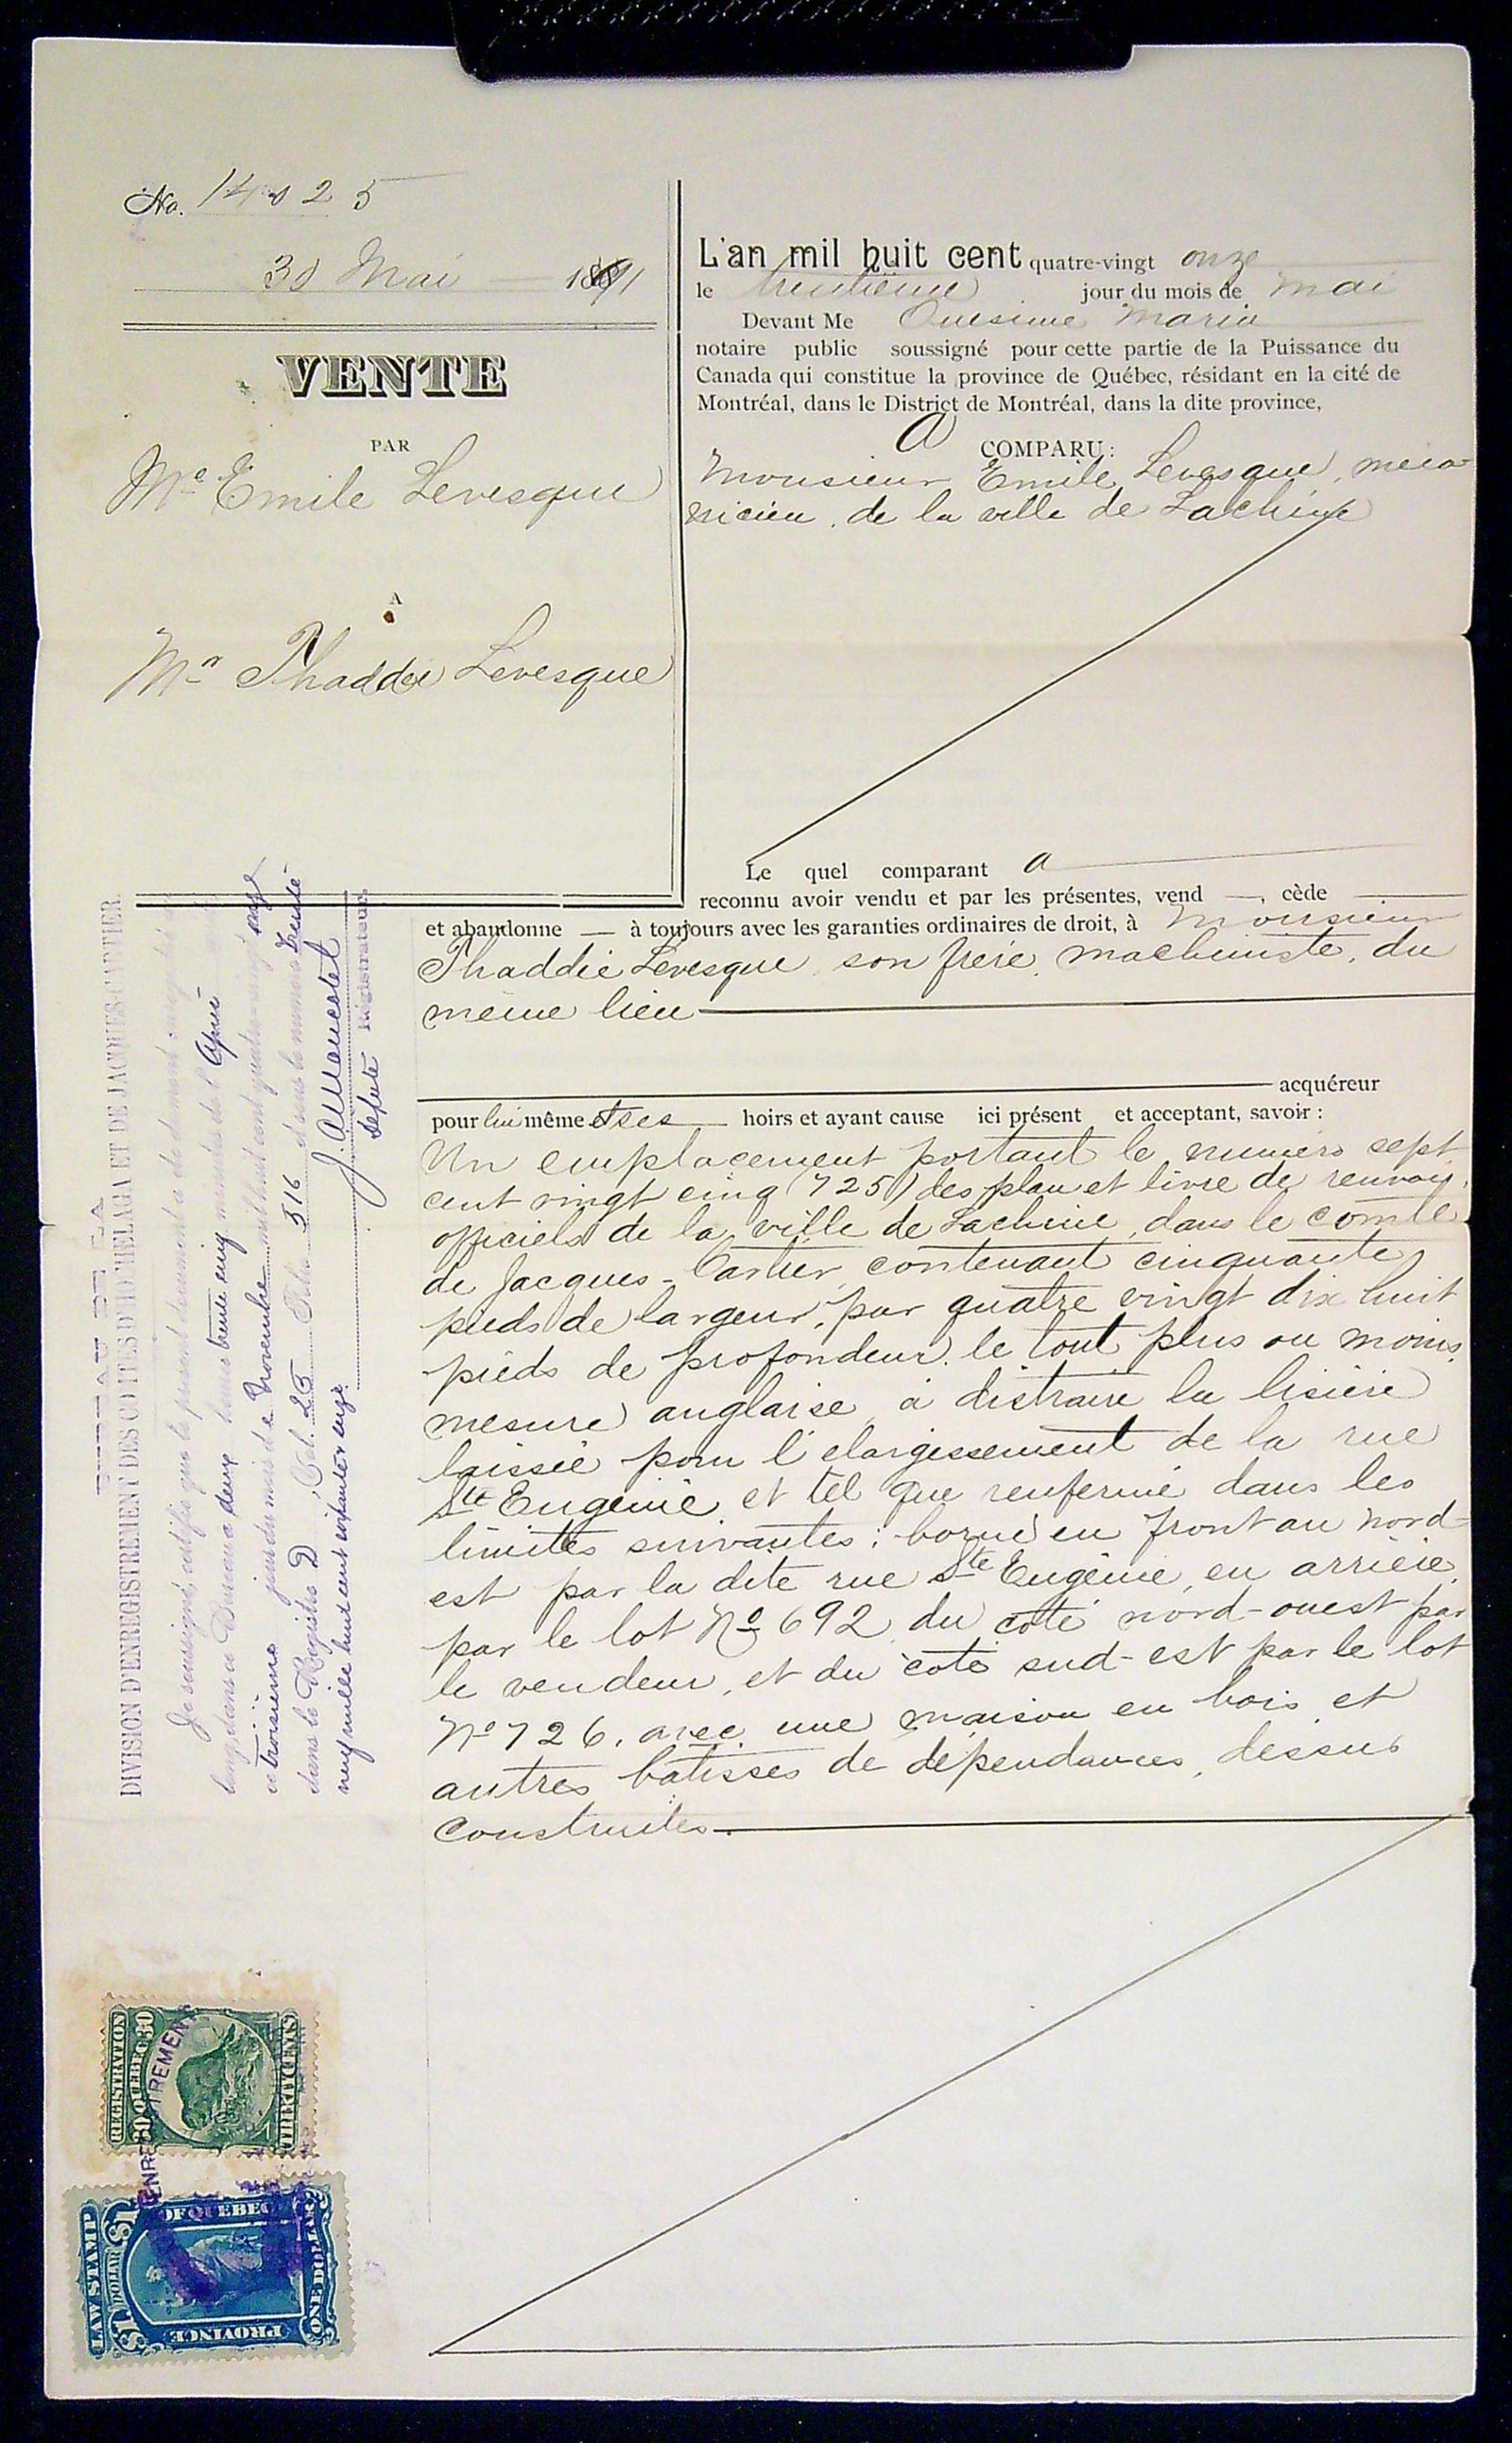 No. 14025
30 Mai 1891
VENTE
PAR
Mr Emile Levesque
A
Mr Thaddée Levesque
L'an mil huit cent quatre-vingt onze
le trentième jour du mois de Mai
Devant Me Onesime Marin
notaire public soussigné pour cette partie de la Puissance du
Canada qui constitue la province de Québec, résidant en la cité de
Montréal, dans le District de Montréal, dans la dite province,
A COMPARU:
Monsieur Emile Levesque, méca
nicien, de la ville de Lachine
Le quel comparant a
reconnu avoir vendu et par les présentes, vend —, cède
et abandonne — à toujours avec les garanties ordinaires de droit, à Monsieur
Thaddée Levesque son frère, machiniste, du
même lieu
acquéreur
pour lui même et ses hoirs et ayant cause ici présent et acceptant, savoir :
Un emplacement portant le numéro sept
cent vingt cinq (725) des plan et livre de renvoi
officiels de la ville de Lachine, dans le comté
de Jacques-Cartier, contenant cinquante
pieds de largeur, par quatre vingt dix huit
pieds de profondeur, le tout plus ou moins,
mesure anglaise, à distraire la lisière
laissée pour l'élargissement de la rue
Ste Eugénie, et tel que renfermé dans les
limites suivantes : borné en front au nord-
est par la dite rue Ste Eugénie, en arrière
par le lot No 692, du côté nord-ouest par
le vendeur, et du côté sud-est par le lot
No 726, avec une maison en bois et
autres batisses de dépendances, dessus
construites.
DIVISION D'ENREGISTREMENT DES COMTÉS D'HOCHELAGA ET DE JACQUES-CARTIER
Je soussigné, certifie que le présent document a été dûment enregistré
long, dans ce Bureau à deux heures trente cinq minutes de l'Après
ce troisième jour du mois de Novembre mil huit cent quatre-vingt onze
dans le Registre D, Vol. 25 Folio 316 et sous le numéro trente
neuf mille huit cent soixante-onze
Député Régistrateur.
REGISTRATION
30 QUEBEC 30
THIRTY CENTS
ENREGISTREMENT
LAW STAMP
$1 DOLLAR $1
PROVINCE
OF QUEBEC
ONE DOLLAR